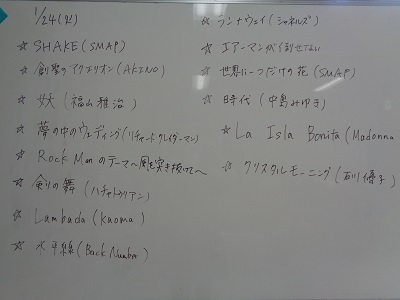 1/24(火)
☆ SHAKE (SMAP)
☆ 創聖のアクエリオン (AKINO)
☆ 妖 (福山雅治)
☆ 夢の中のウェディング (リチャードクレイダーマン)
☆ Rock Man のテーマ〜風を突き抜けて〜
☆ 剣の舞 (ハチャトゥリアン)
☆ Lambada (Kaoma)
☆ 水平線 (Back Number)
☆ ランナウェイ (シャネルズ)
☆ エアーマンが倒せない
☆ 世界に一つだけの花 (SMAP)
☆ 時代 (中島みゆき)
☆ La Isla Bonita (Madonna
☆ クリスタルモーニング (石川優子)